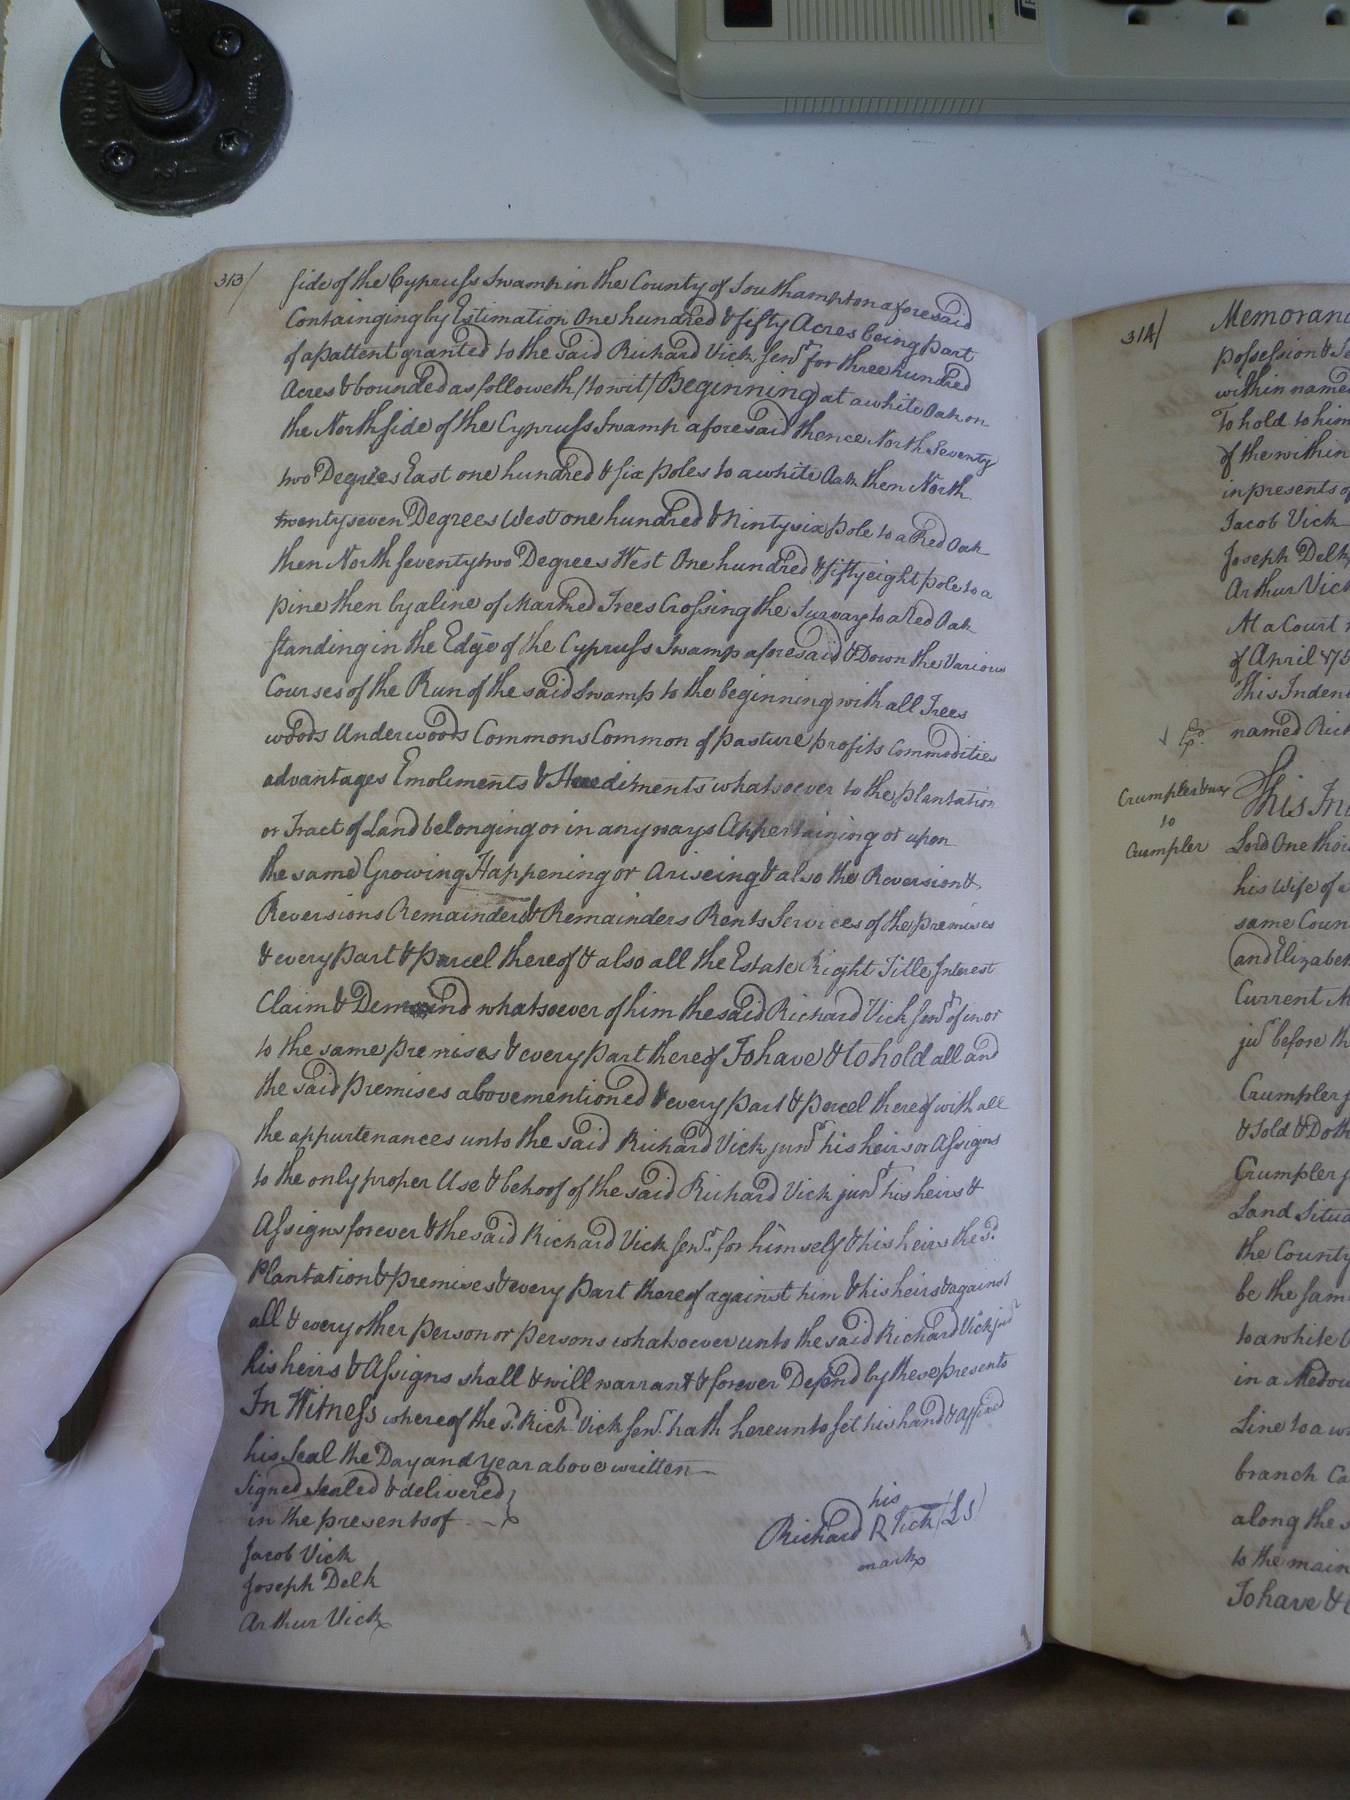 313/
side of the Cypruss Swamp in the County of Southampton aforesaid
Containging by Estimation One hundred & fifty Acres being part
of a pattent granted to the said Richard Vick Senr. for three hundred
Acres & bounded as followeth /to wit/ Beginning at a white Oak on
the North side of the Cypruss Swamp aforesaid thence North Seventy
two Degrees East one hundred & six poles to a white Oak then North
twenty seven Degrees West one hundred & Ninty six pole to a Red Oak
then North seventy two Degrees West One hundred & fifty eight pole to a
pine then by a line of Marked Trees Crossing the Survay to a Red Oak
standing in the Edge of the Cypruss Swamp aforesaid & Down the Various
Courses of the Run of the said Swamp to the beginning with all Trees
woods Underwoods Commons Common of pasture profits Commodities
advantages Emoliments & Hereditments whatsoever to the plantation
or Tract of Land belonging or in any ways Appertaining or upon
the same Growing Happening or Ariseing & also the Reversion &
Reversions Remainder & Remainders Rents Services of the premises
& every part & parcel thereof & also all the Estate Right Title Interest
Claim & Demand whatsoever of him the said Richard Vick Senr. of in or
to the same premises & every part thereof To have & to hold all and
the said premises abovementioned & every part & parcel thereof with all
the appurtenances unto the said Richard Vick junr. his heirs or Assigns
to the only proper Use & behoof of the said Richard Vick junr. his heirs &
Assigns forever & the said Richard Vick Senr. for himself & his heirs the sd.
Plantation & premises & every part thereof against him & his heirs & against
all & every other person or persons whatsoever unto the said Richard Vick junr
his heirs & Assigns shall & will warrant & forever Defend by these presents
In Witness whereof the sd. Richd. Vick Senr. hath hereunto set his hand & Affixed
his Seal the Day and Year above written
Signed Sealed & delivered
in the presents of
Jacob Vick
Joseph Delk
Arthur Vick
his
Richard R Vick (LS)
mark
314/
Memoran
possession & Se
within name
To hold to him
of the within
in presents of
Jacob Vick
Joseph Delk
Arthur Vick
At a Court
of April 175
this Indent
named Rich
Crumpler & ux
to
Crumpler
This In
Lord One thou
his Wife of
same Coun
and Elizabet
Current M
before th
Crumpler j
& Sold & Doth
Crumpler j
Land Situa
the County
be the same
to a white O
in a Medow
Line to a w
branch Ca
along the s
to the main
To have & t